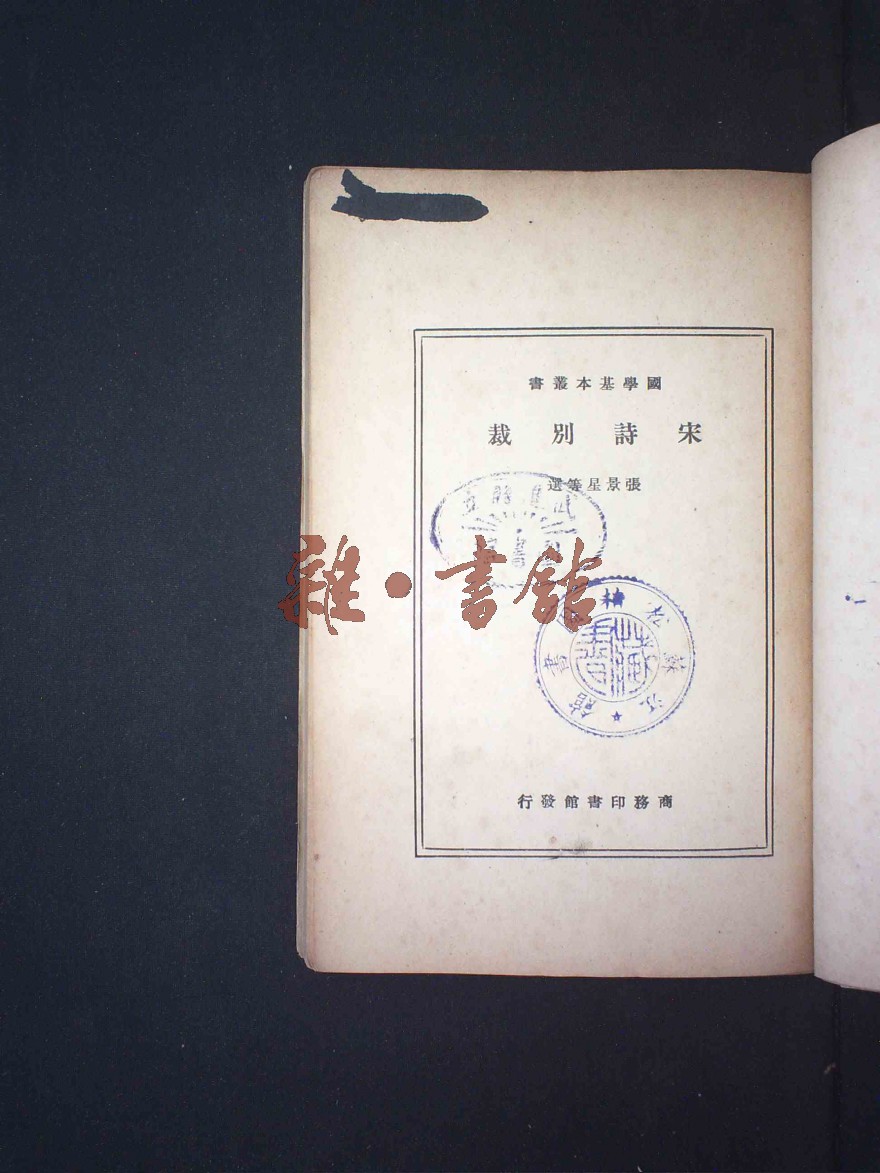 國學基本叢書
宋詩別裁
張景星等選
雜·書館
商務印書館發行